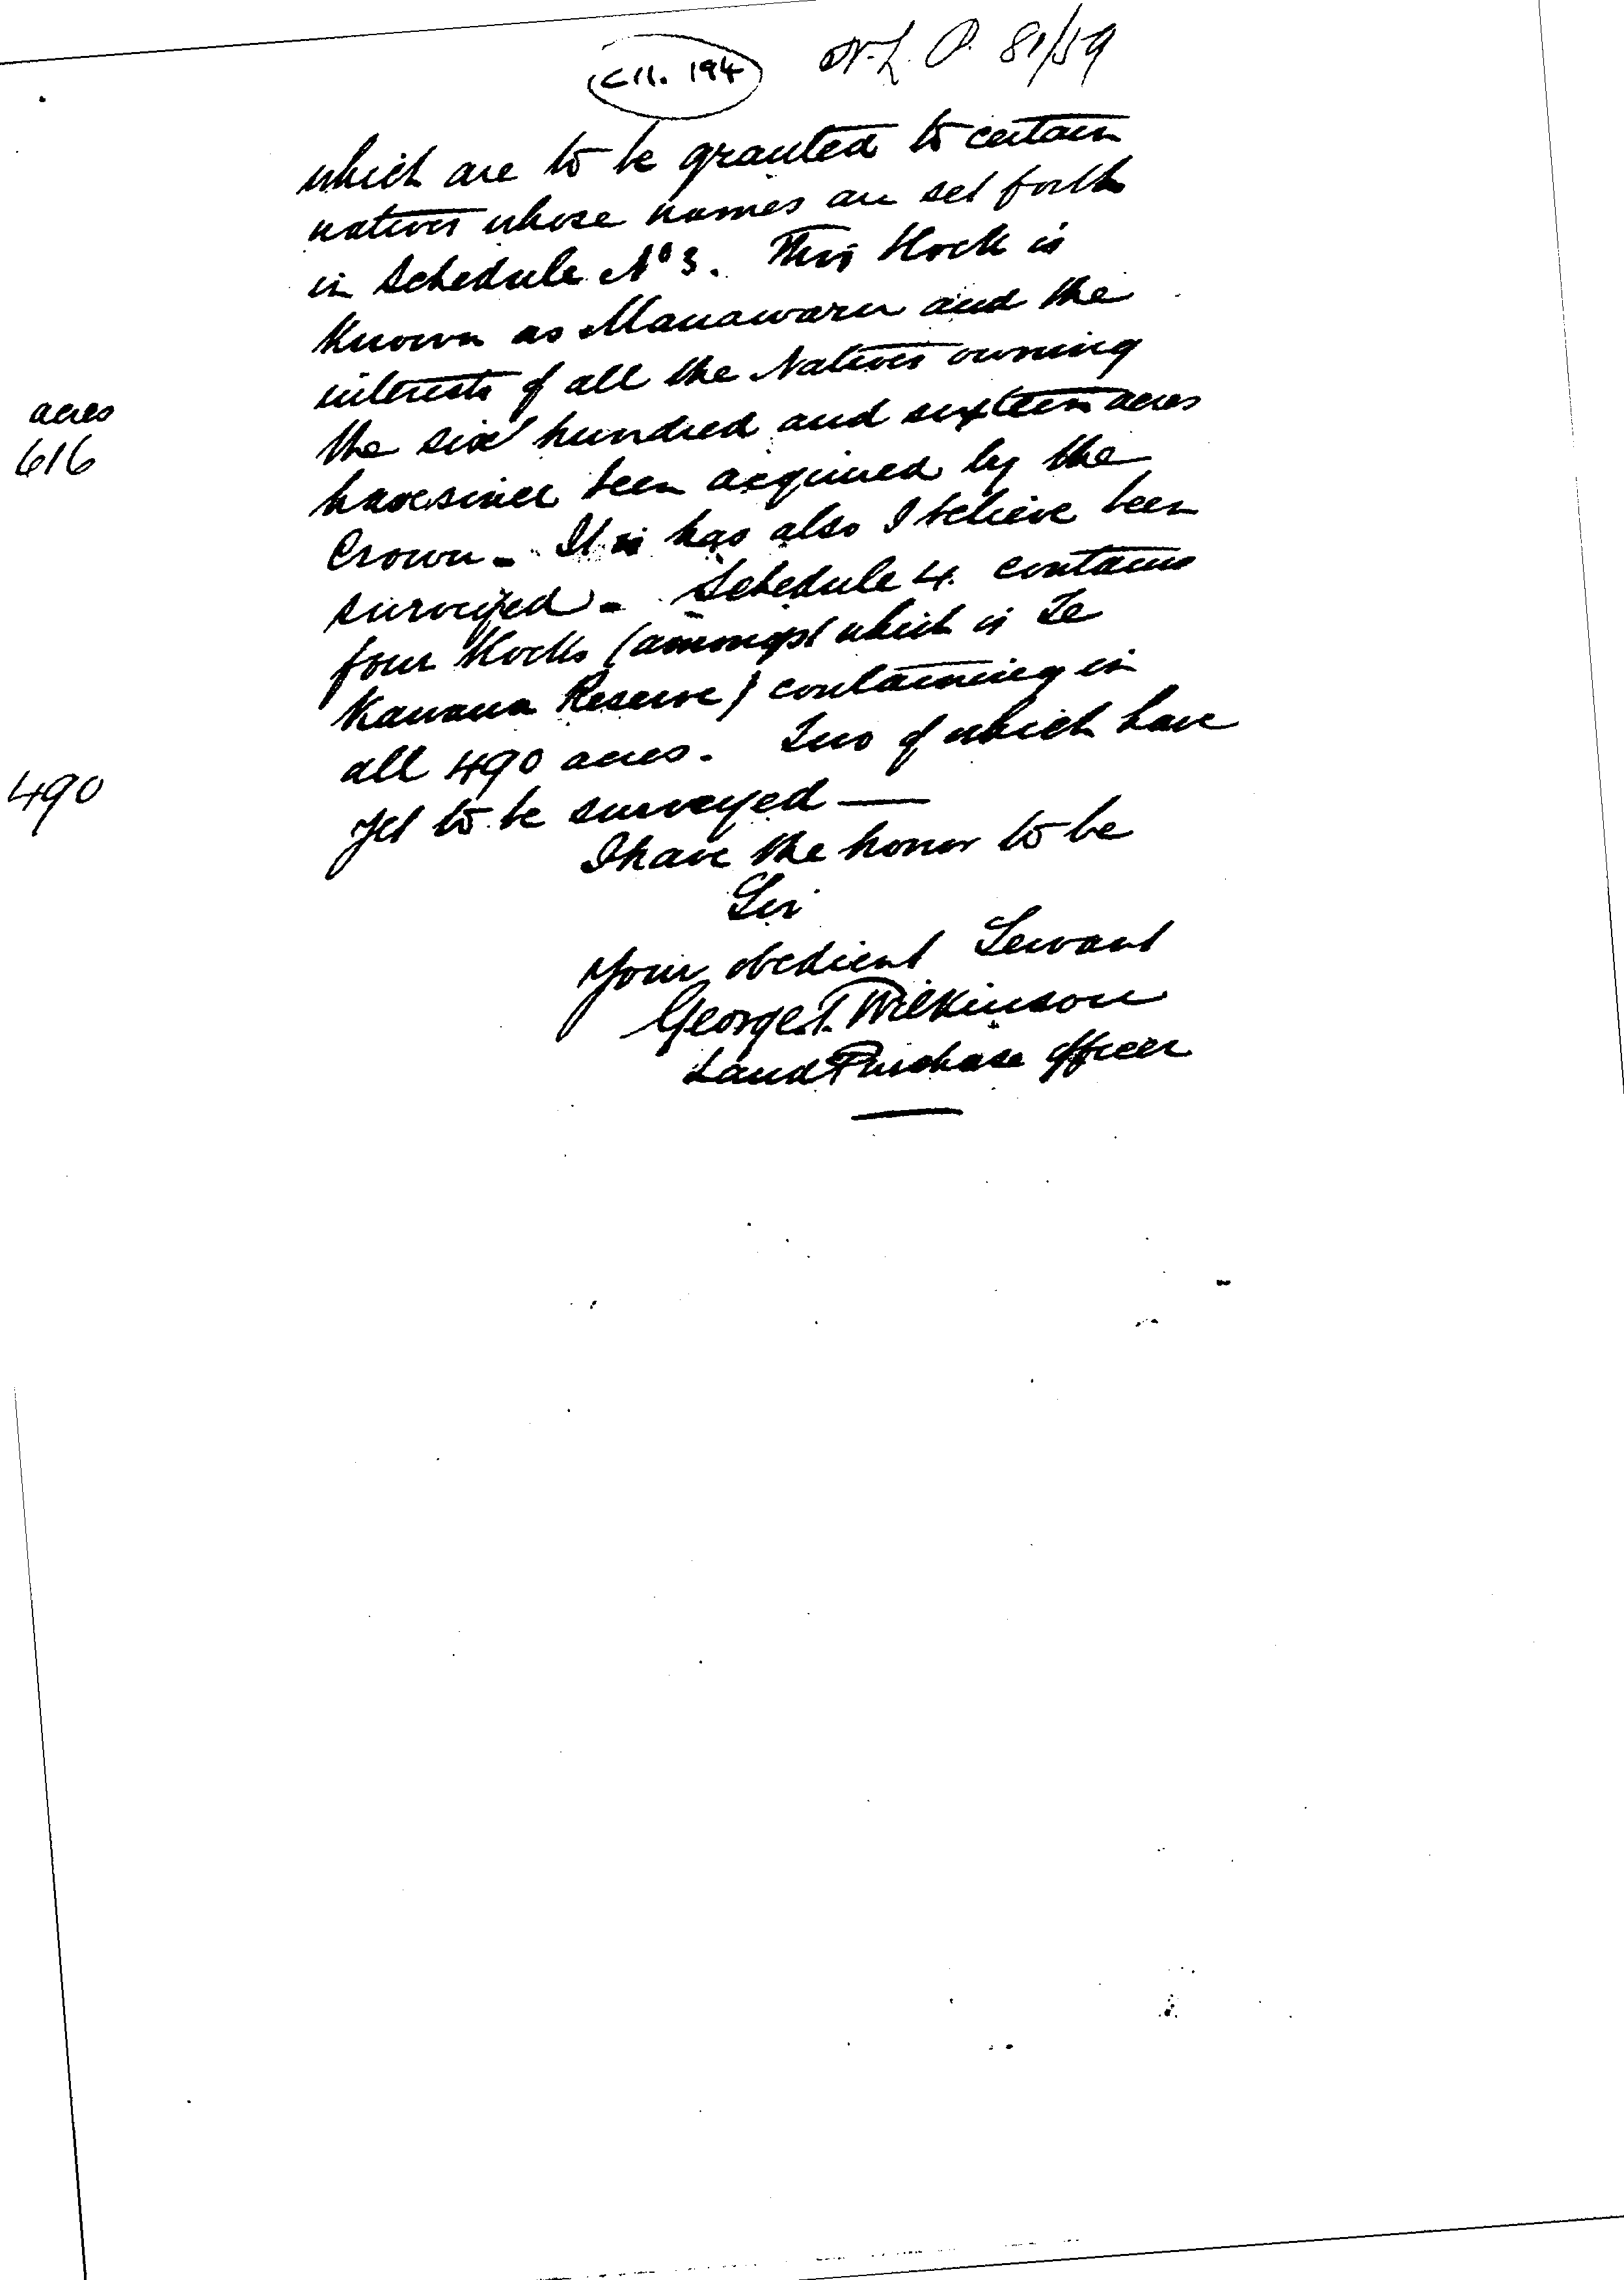 C11. 194
N. L. P. 81/59
which are to be granted to certain
natives whose names are set forth
in Schedule No 3. This block is
known as Manawaru and the
interests of all the Natives owning
acres
616
the six hundred and sixteen acres
have since been acquired by the
Crown - It is has also I believe been
surveyed - Schedule 4. contains
four blocks (amongst which is Te
Kawana Reserve) containing in
all 490 acres. Two of which have
490
yet to be surveyed —
I have the honor to be
Sir
Your obedient Servant
George T. Wilkinson
Land Purchase Officer